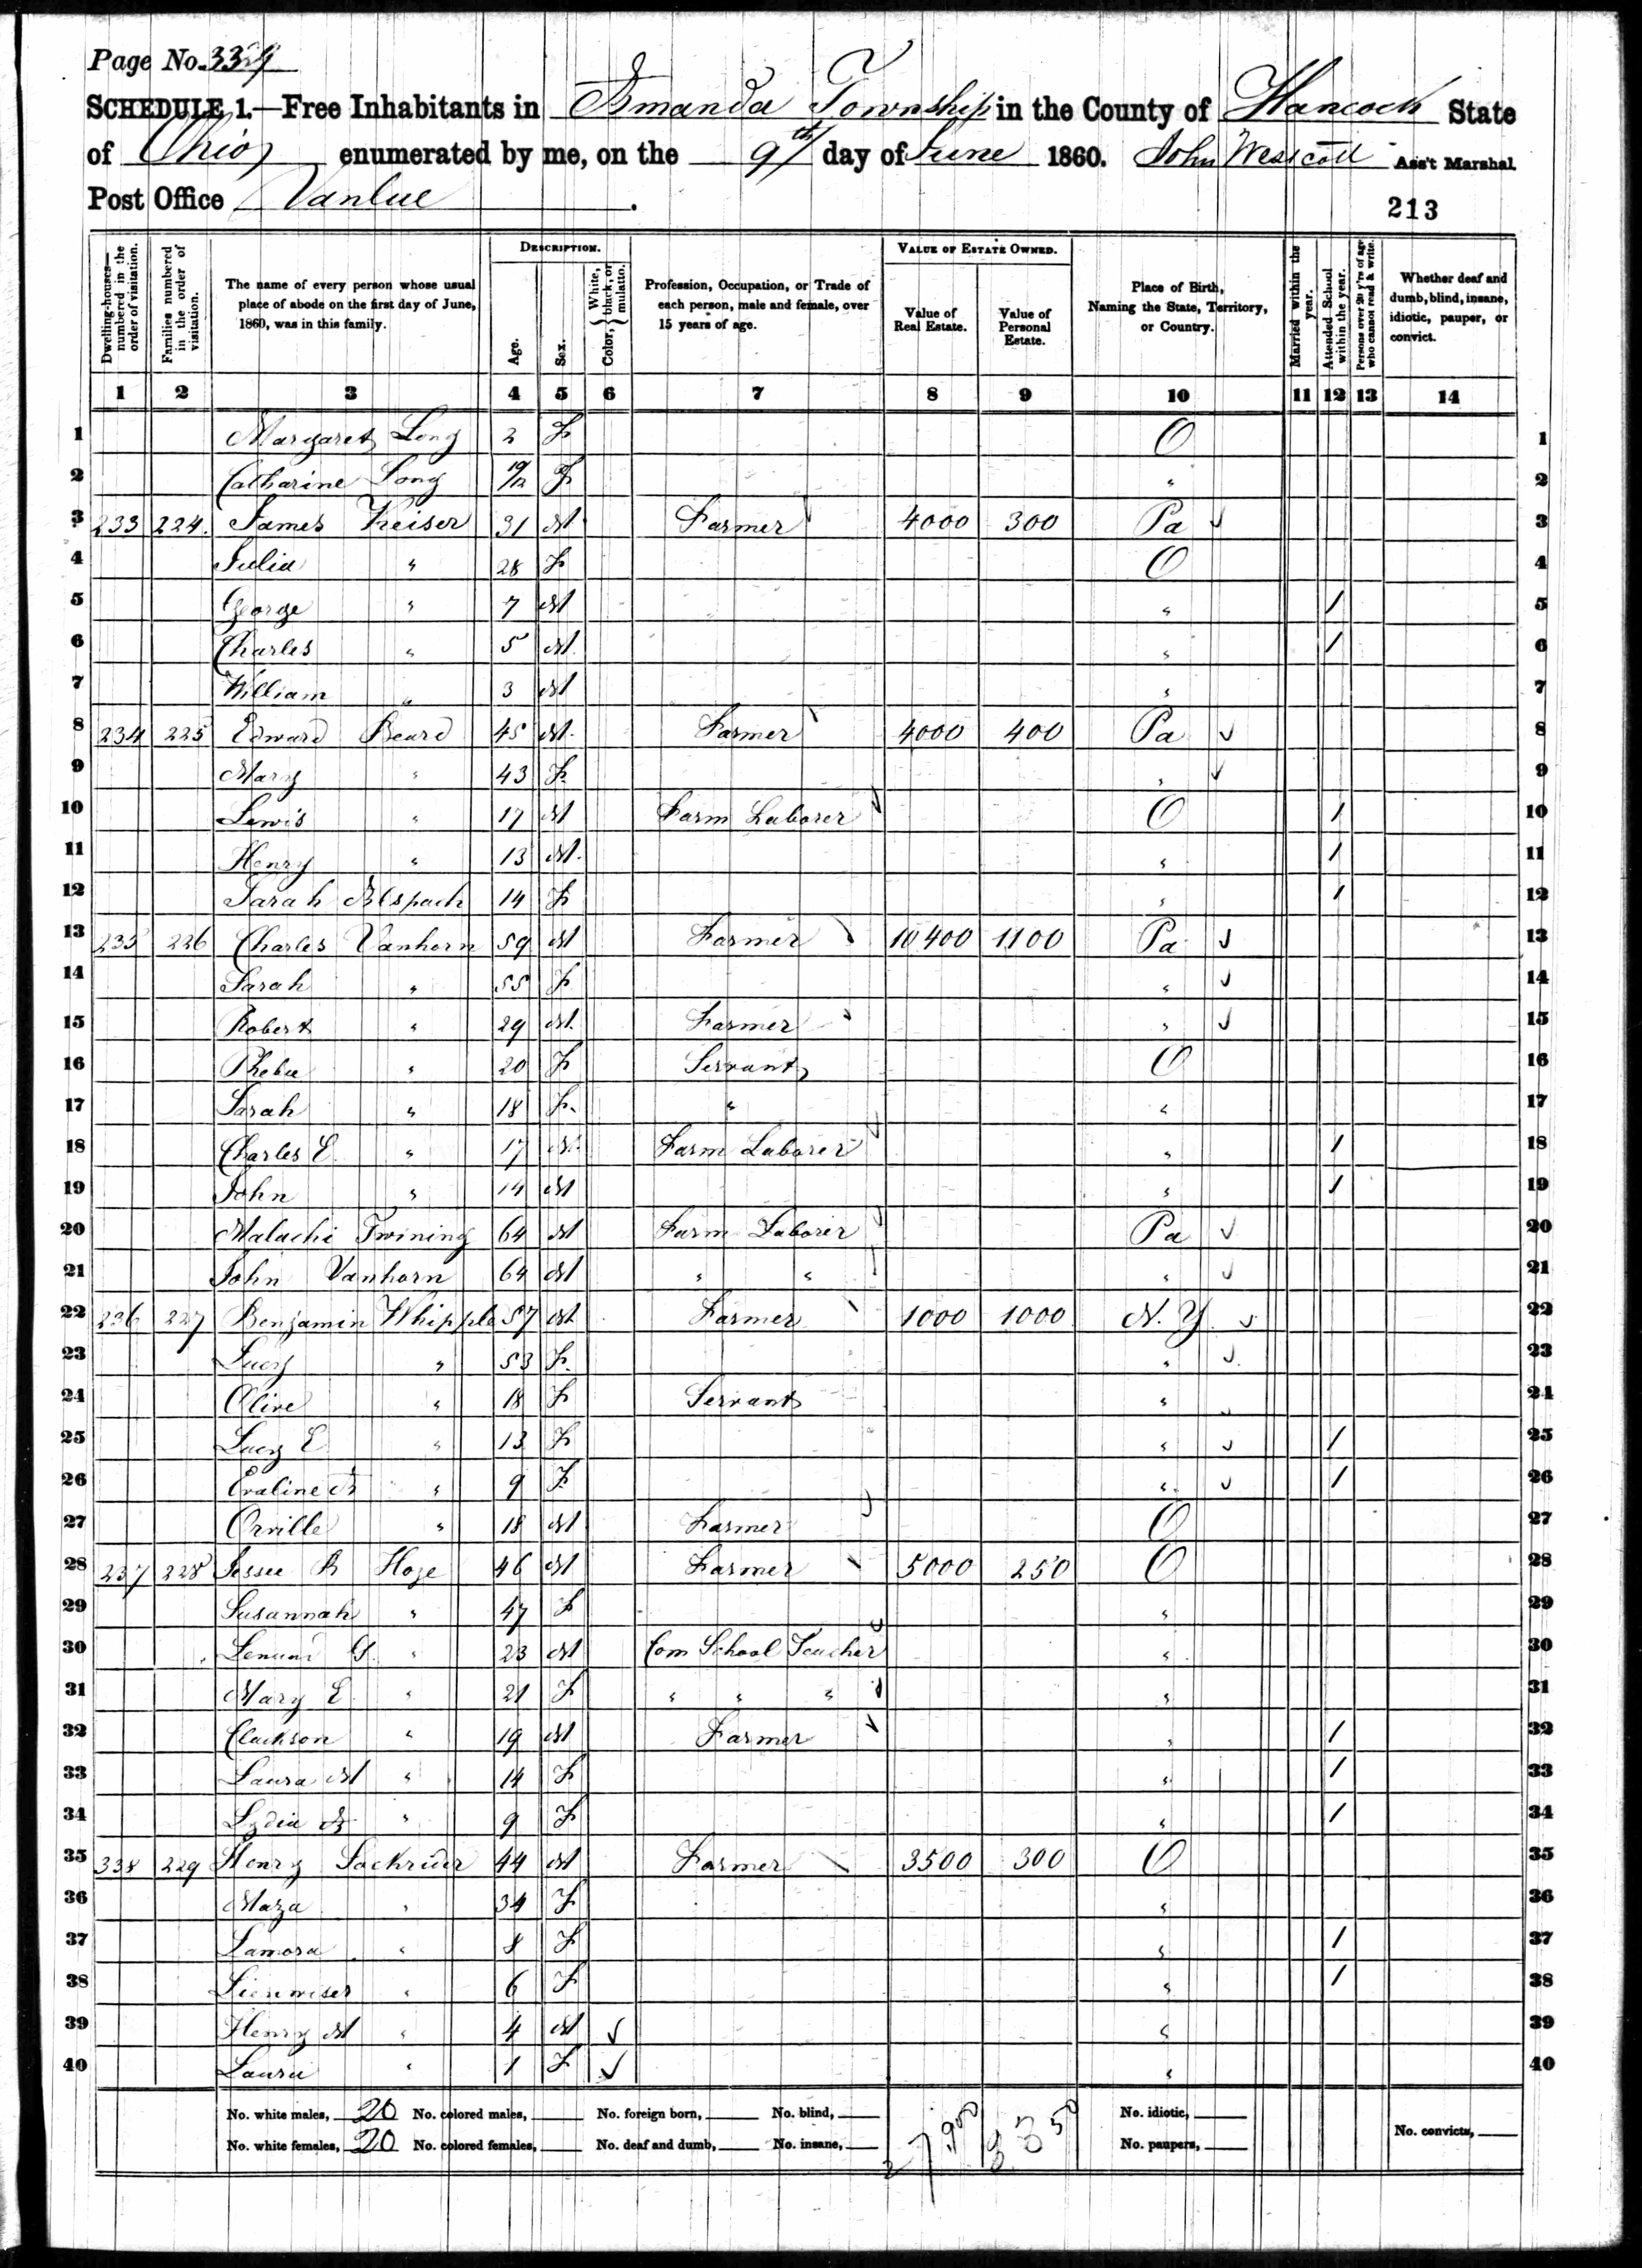 Page No. 33
SCHEDULE 1.—Free Inhabitants in Amanda Township in the County of Hancock State
of Ohio enumerated by me, on the 9th day of June 1860. John Westcott Ass't Marshal.
Post Office Vanlue.
213
DESCRIPTION.
VALUE OF ESTATE OWNED.
Dwelling-houses—numbered in the order of visitation.
Families numbered in the order of visitation.
The name of every person whose usual place of abode on the first day of June, 1860, was in this family.
Age.
Sex.
Color, { White, black, or mulatto.
Profession, Occupation, or Trade of each person, male and female, over 15 years of age.
Value of Real Estate.
Value of Personal Estate.
Place of Birth, Naming the State, Territory, or Country.
Married within the year.
Attended School within the year.
Persons over 20 y'rs of age who cannot read & write.
Whether deaf and dumb, blind, insane, idiotic, pauper, or convict.
1 2 3 4 5 6 7 8 9 10 11 12 13 14
1 Margaret Long 2 F O 1
2 Catharine Long /12 F " 2
3 233 224. James Keiser 31 M Farmer 4000 300 Pa 3
4 Julia " 28 F O 4
5 George " 7 M " / 5
6 Charles " 5 M " / 6
7 William " 3 M " 7
8 234 225 Edward Beard 45 M Farmer 4000 400 Pa 8
9 Mary " 43 F " 9
10 Lewis " 17 M Farm Laborer O / 10
11 Henry " 13 M " / 11
12 Sarah Alspach 14 F " / 12
13 235 226 Charles Vanhorn 59 M Farmer 10400 1100 Pa 13
14 Sarah " 55 F " 14
15 Robert " 29 M Farmer " 15
16 Phebe " 20 F Servant O 16
17 Sarah " 18 F " " 17
18 Charles E. " 17 M Farm Laborer " / 18
19 John " 14 M " / 19
20 Malachi Twining 64 M Farm Laborer Pa 20
21 John Vanhorn 64 M " " " 21
22 236 227 Benjamin Whipple 57 M Farmer 1000 1000 N.Y. 22
23 Lucy " 53 F " 23
24 Olive " 18 F Servant " 24
25 Lucy E " 13 F " / 25
26 Evaline " 9 F " / 26
27 Orville " 18 M Farmer O 27
28 237 228 Jessee R Hoge 46 M Farmer 5000 250 O 28
29 Susannah " 47 F " 29
30 G. " 23 M Com School Teacher " 30
31 Mary E " 21 F " " " " 31
32 Clackson " 19 M Farmer " / 32
33 Laura M " 14 F " / 33
34 Lydia " 9 F " / 34
35 338 229 Henry Sackrider 44 M Farmer 3500 300 O 35
36 Maza " 34 F " 36
37 Lamora " 8 F " / 37
38 " 6 F " / 38
39 Henry M " 4 M " 39
40 Laura " 1 F " 40
No. white males, 20 No. colored males, No. foreign born, No. blind, No. idiotic,
No. white females, 20 No. colored females, No. deaf and dumb, No. insane, No. paupers, No. convicts,
27,900